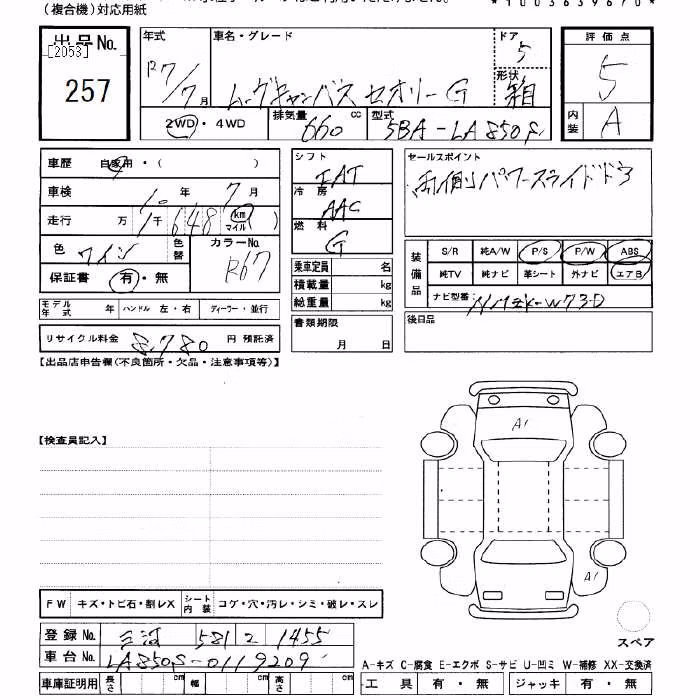 (複合機)対応用紙
*1003639670*
出品No.
[2053]
257
年式
R7/7月
車名・グレード
ムーヴキャンバス セオリーG
ドア
5
形状
箱
2WD・4WD
排気量
660 cc
型式
5BA-LA850S
評価点
5
内装
A
車歴 自家用・( )
車検 10年 7月
走行 万 1千648 km マイル ( )
色 ワイン
色替
カラーNo.
R67
保証書 有・無
シフト
IAT
冷房
AAC
燃料
G
乗車定員 名
積載量 kg
総重量 kg
書類期限
月 日
セールスポイント
両側パワースライドドア
装備品
S/R 純A/W P/S P/W ABS
純TV 純ナビ 革シート 外ナビ エアB
ナビ型番: NMZK-W73D
後日品
モデル年式 年 ハンドル 左・右 ディーラー・並行
リサイクル料金 8,780 円 預託済
【出品店申告欄(不良箇所・欠品・注意事項等)】
【検査員記入】
A1
A1
スペア
FW キズ・トビ石・割レX シート内装 コゲ・穴・汚レ・シミ・破レ・スレ
登録No. 三河 581 2 1455
車台No. LA850S-0119209
車庫証明用 長さ cm 幅 cm 高さ cm
A-キズ C-腐食 E-エクボ S-サビ U-凹ミ W-補修 XX-交換済
工具 有・無 ジャッキ 有・無